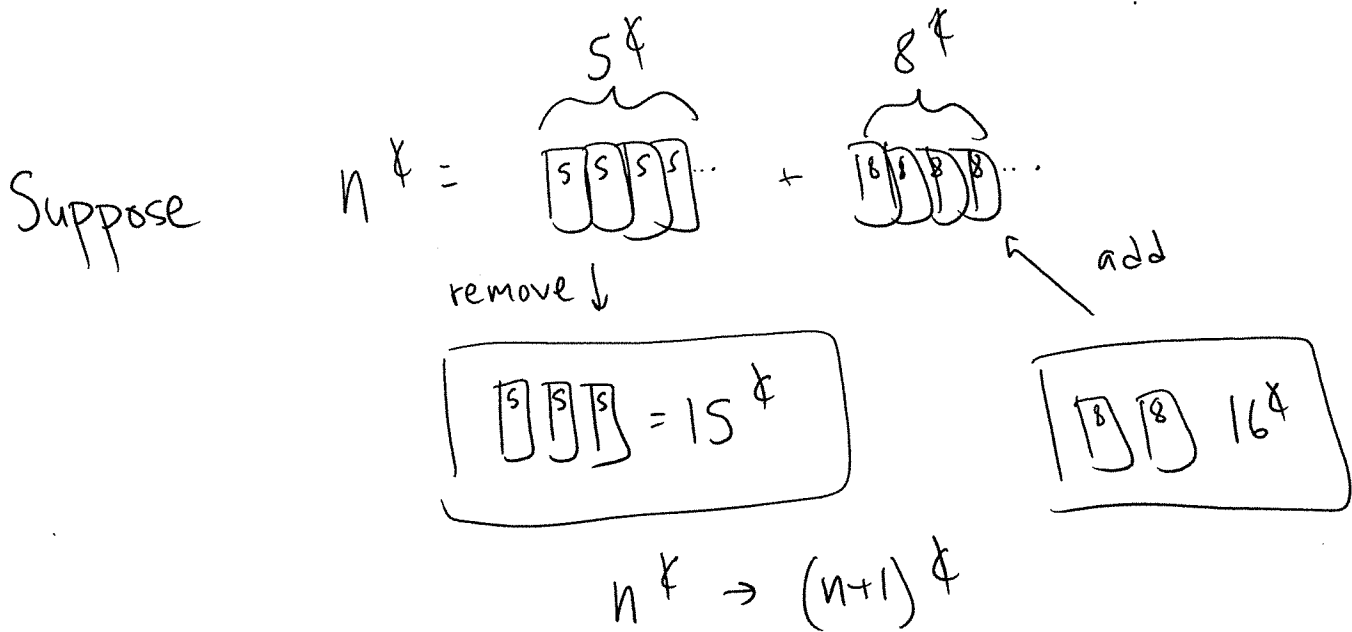 5¢ 8¢
Suppose n¢ = 5 5 5 5 ... + 8 8 8 8 ...
remove ↓ add
5 5 5 = 15¢ 8 8 16¢
n¢ → (n+1)¢